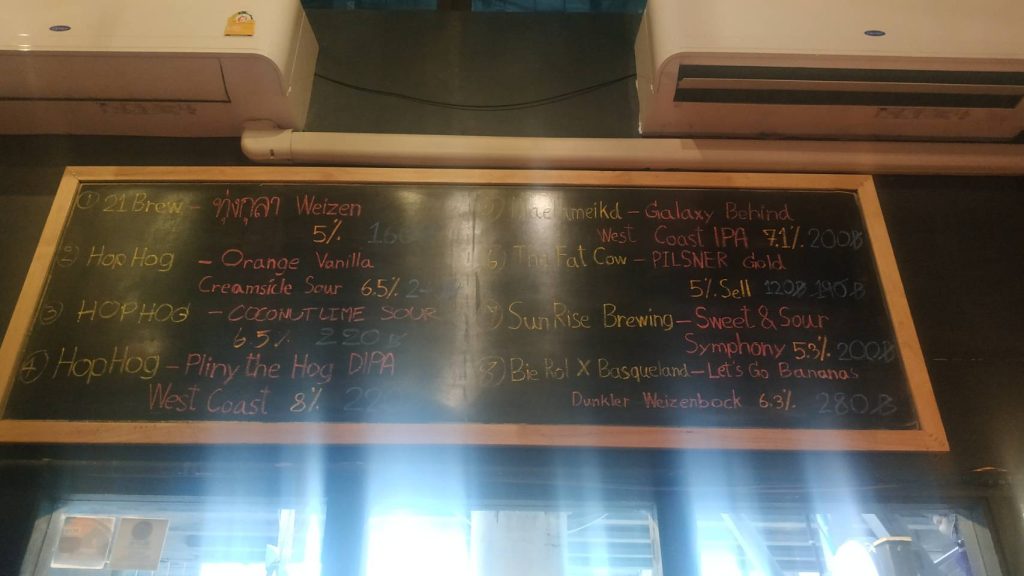 ① 21 Brew - ทุ่งกุลา Weizen
5%
② Hop Hog - Orange Vanilla
Creamsicle Sour 6.5%
③ HOPHOG - COCONUT LIME SOUR
6.5% 220฿
④ HopHog - Pliny the Hog DIPA
West Coast 8%
- Galaxy Behind
West Coast IPA 7.1% 200฿
The Fat Cow - PILSNER Gold
5% Sell 120฿ 190฿
Sun Rise Brewing - Sweet & Sour
Symphony 5.3% 200฿
⑧ Bie Rol X Basqueland - Let's Go Bananas
Dunkler Weizenbock 6.3% 280฿